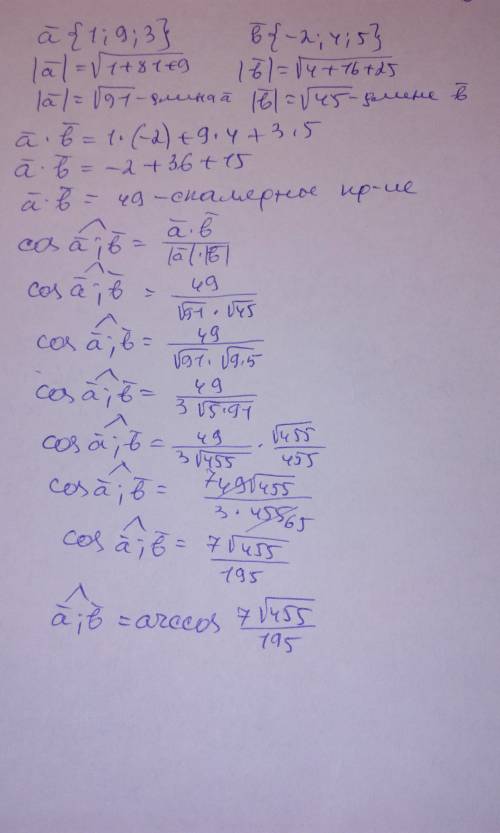 ā {1; 9; 3} b̄ {-2; 4; 5}
|ā| = √(1+81+9) |b̄| = √(4+16+25)
|ā| = √91 - длина ā |b̄| = √45 - длине b̄
ā · b̄ = 1 · (-2) + 9 · 4 + 3 · 5
ā · b̄ = -2 + 36 + 15
ā · b̄ = 49 - скалерные пр-ие
cos ā^;b̄ = ā · b̄ / |ā| · |b̄|
cos ā^;b̄ = 49 / √91 · √45
cos ā^;b̄ = 49 / √91 · √9·5
cos ā^;b̄ = 49 / 3√5·91
cos ā^;b̄ = 49 / 3√455 · √455 / 455
cos ā^;b̄ = 7 49√455 / 3 · 455 65
cos ā^;b̄ = 7√455 / 195
ā^;b̄ = arccos 7√455 / 195